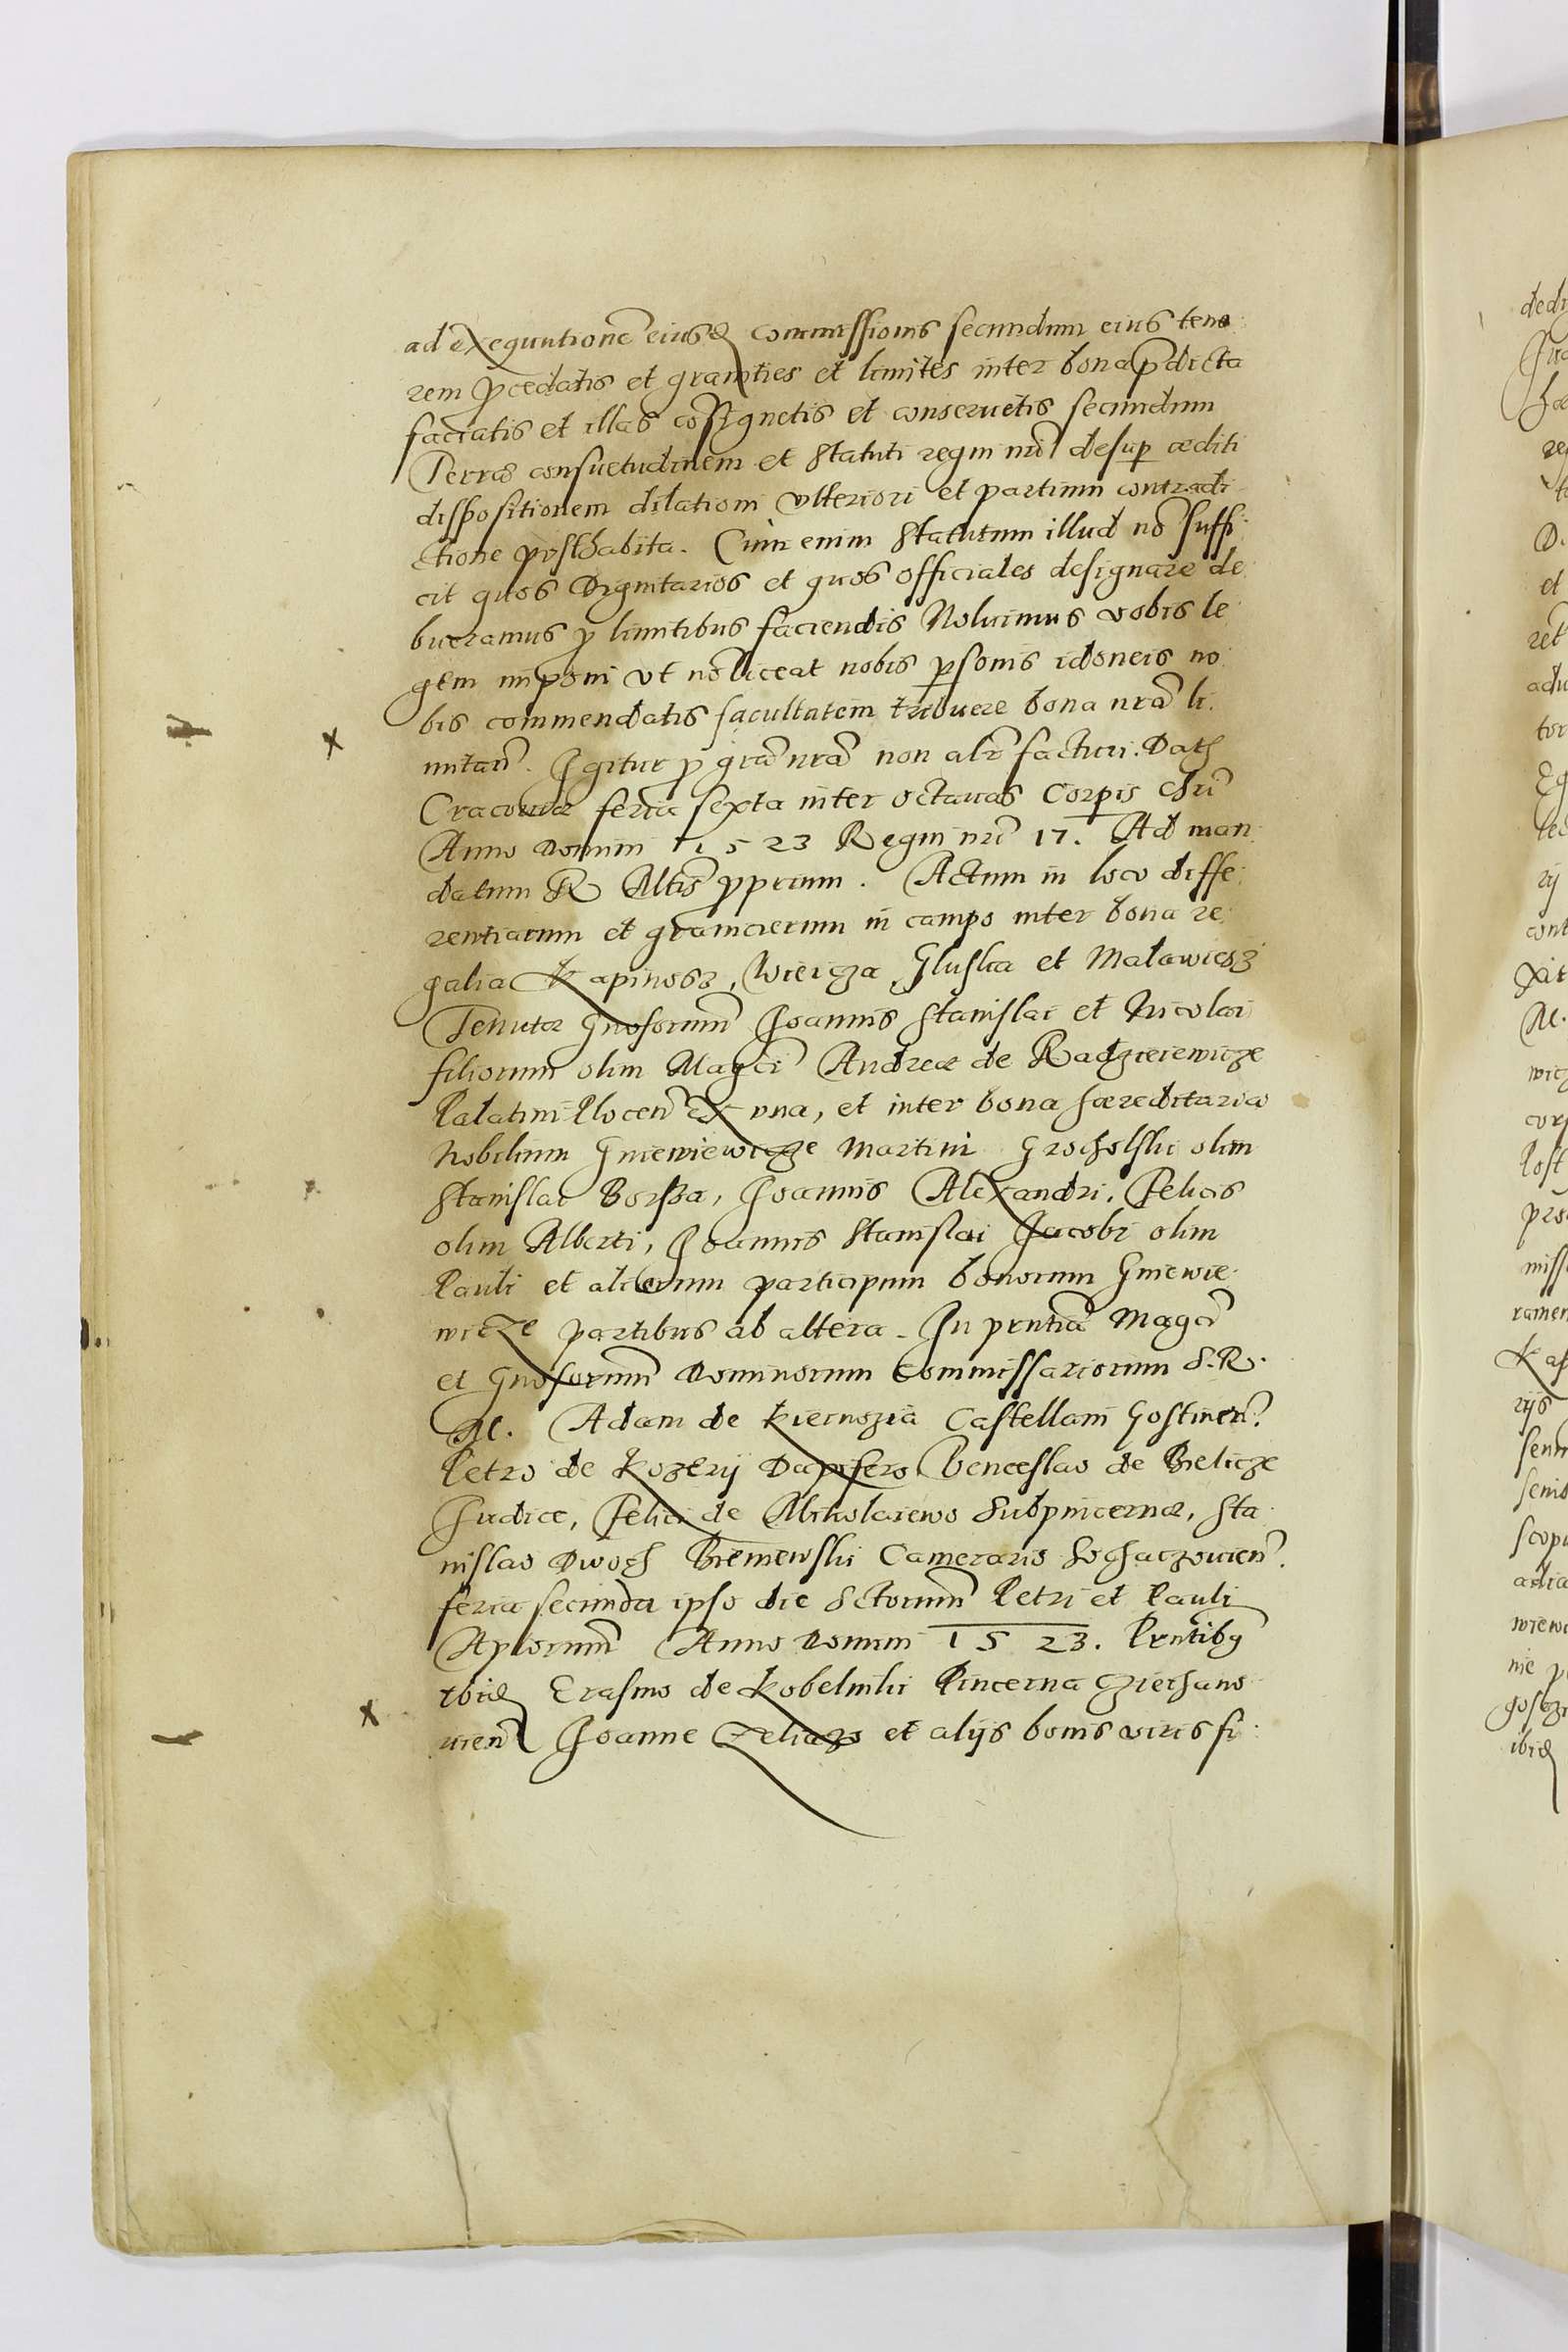 ad exequutionē eiusđ commissionis secundum eius teno
rem ꝓcedatis et granities et limites inter bona p̄dicta
faciatis et illas cōsignetis et conseruetis secundum
Terræ consuetudinem et statuti regni nr̄i desuꝑ æditi
dispositionem dilationi vlteriori et partium contradi
ctione posthabita. Cum enim statutum illud nō suffi
cit quos Dignitarios et quos officiales designare de
bueramus ꝓ limitibus faciendis Noluimus vobis le
gem imponi vt nō liceat nobis ꝑsonis idoneis no
bis commendatis facultatem tribuere bona nrā li
mitan̄. Igitur ꝓ grā nrā non alr̄ facturi. Datꝭ
Cracouiæ feria sexta inter octauas Corꝑis Chrī
Anno Domini 1523 Regni nrī 17. Ad man
datum R Mtis ꝓprium. Actum in loco diffe
rentiarum et granicierum in campo inter bona re
galia Kapinosz, Wieicza, Gluska et Malawiesz
Tenutæ Gnosorum̄ Joannis Stanislai et Nicolai
filiorum olim Magci Andreæ de Radzieiewicze
Palatini Plocen̄ ex vna, et inter bona hæreditaria
Nobilium Gniewiewicze Martini Grocholski olim
Stanislai Borsza, Joannis Alexandri, Felicis
olim Alberti, Joannis Stanislai Jacobi olim
Pauli et aliorum participum bonorum Gniewie
wicze partibus ab altera. In pn̄tia Magci
et Gnosorum̄ Dominorum Commissariorum S. R.
M. Adam de Kiernozia Castellani Gostinen̄.
Petro de Kozery Dapifero Venceslao de Bielicze
Judice, Felici de Mikolaiewo Subpincernæ, Sta
nislao Dwogh Biemewski Camerario Sochaczouien̄.
feria secunda ipso die Sctorum̄ Petri et Pauli
Aplorum̄ Anno Domini 1523. Pn̄tibꝫ
ibiđ Erasmo de Kobelniki Pincerna Cziechano
uien̄ Joanne Zeliazo et alijs bonis viris fi
dedi
et
ret
rij
cont
Kap
rijs
scopu
ibiđ